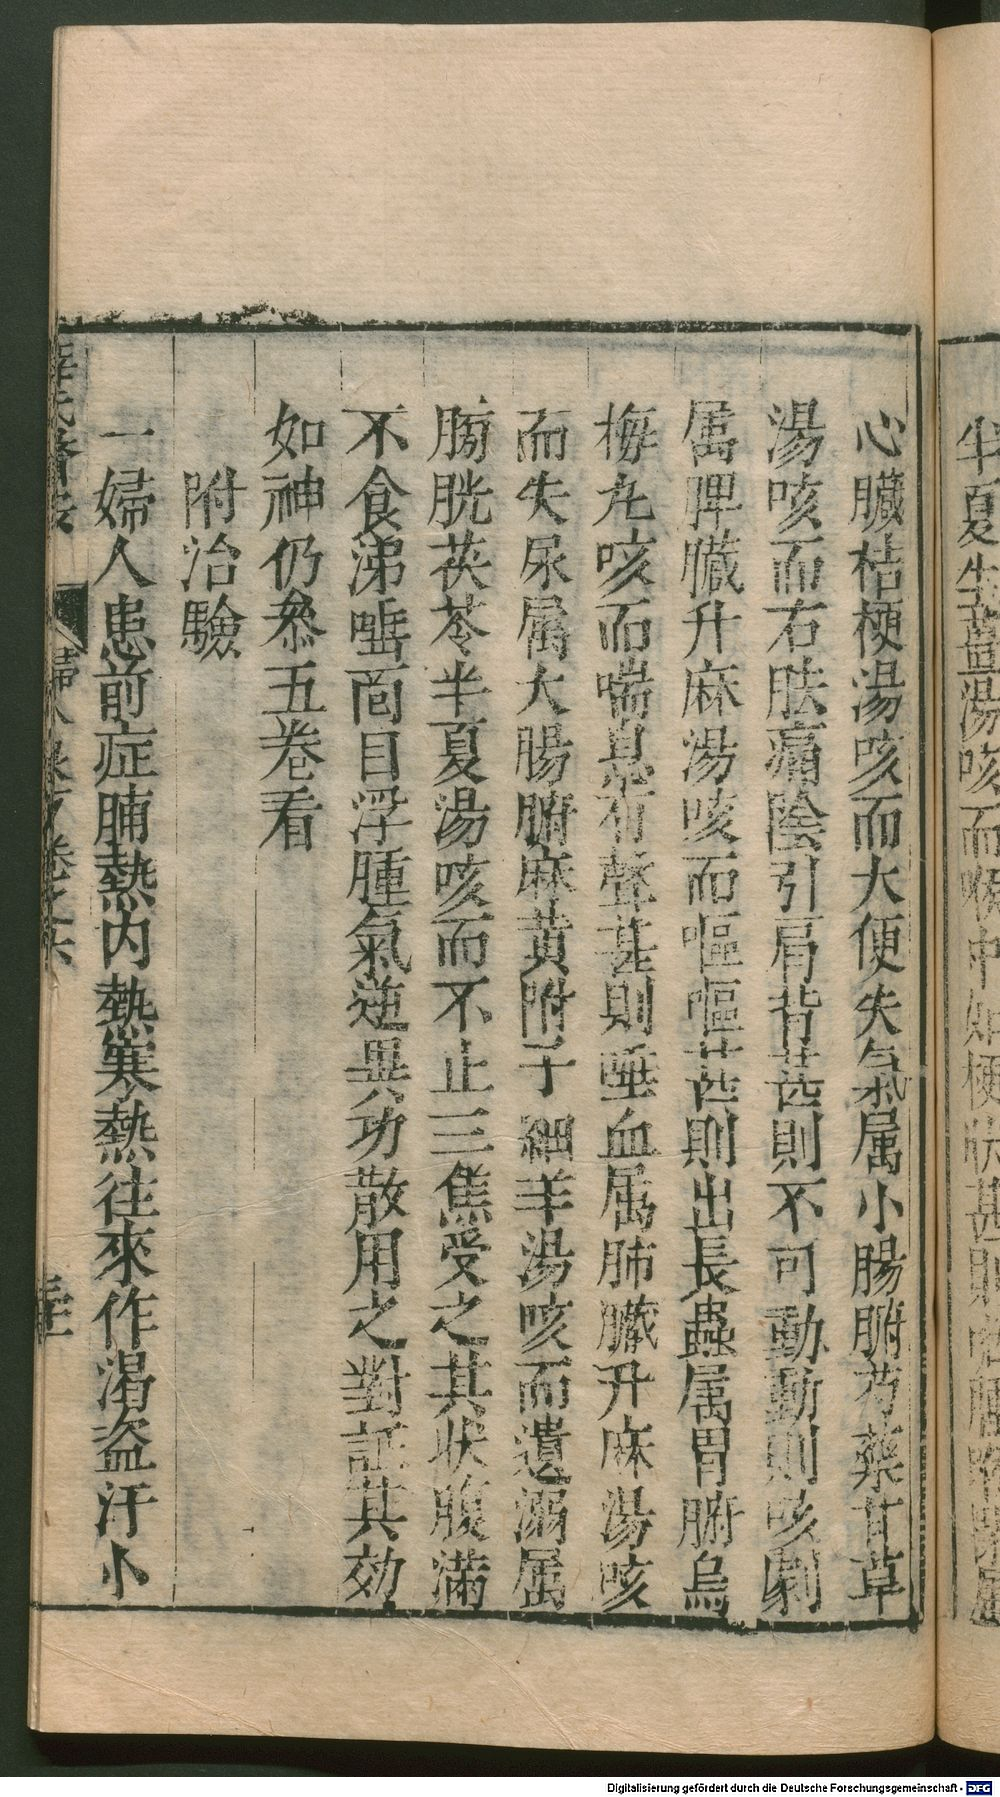 半夏生薑湯咳而喉中如梗狀甚則咽腫喉痺屬
心臟桔梗湯咳而大便失氣属小腸腑芍藥甘草
湯咳而右胠痛陰引肩背甚則不可動動則咳劇
属脾臟升麻湯咳而嘔嘔甚則出長蟲属胃腑烏
梅丸咳而喘息有聲甚則唾血属肺臟升麻湯咳
而失尿屬大腸腑麻黄附子細羊湯咳而遺溺属
膀胱茯苓半夏湯咳而不止三焦受之其状腹滿
不食涕唾面目浮腫氣逆異功散用之對証其効
如神仍叅五卷看
附治驗
一婦人患前症脯熱内熱寒熱往來作渴盗汗小
薛氏醫按
婦人良方卷之六
Digitalisierung gefördert durch die Deutsche Forschungsgemeinschaft - DFG